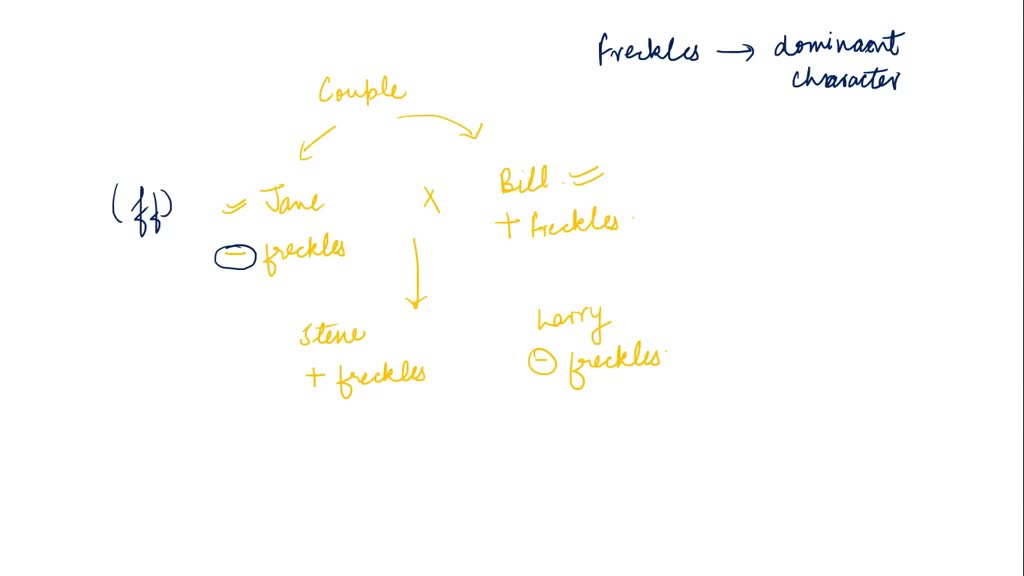 Freckles → dominant
character
Couple
(ff) Jane x Bill
- freckles + freckles
Steve Larry
+ freckles - freckles